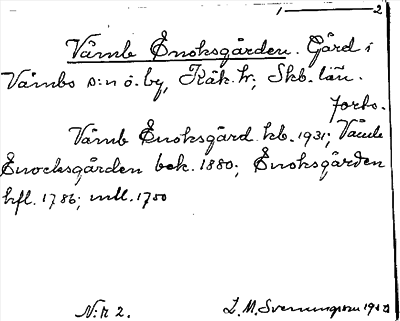 1 ——— 2
Våmb Enoksgården. Gård i
Våmbs s:n o. by, Kåk. hr; Skb. län.
forts.
Våmb Enoksgård kb. 1931; Våmb
Enocksgården bek. 1880; Enoksgården
hfl. 1786; mtl. 1700
N:r 2.
L. M. Svenungsson